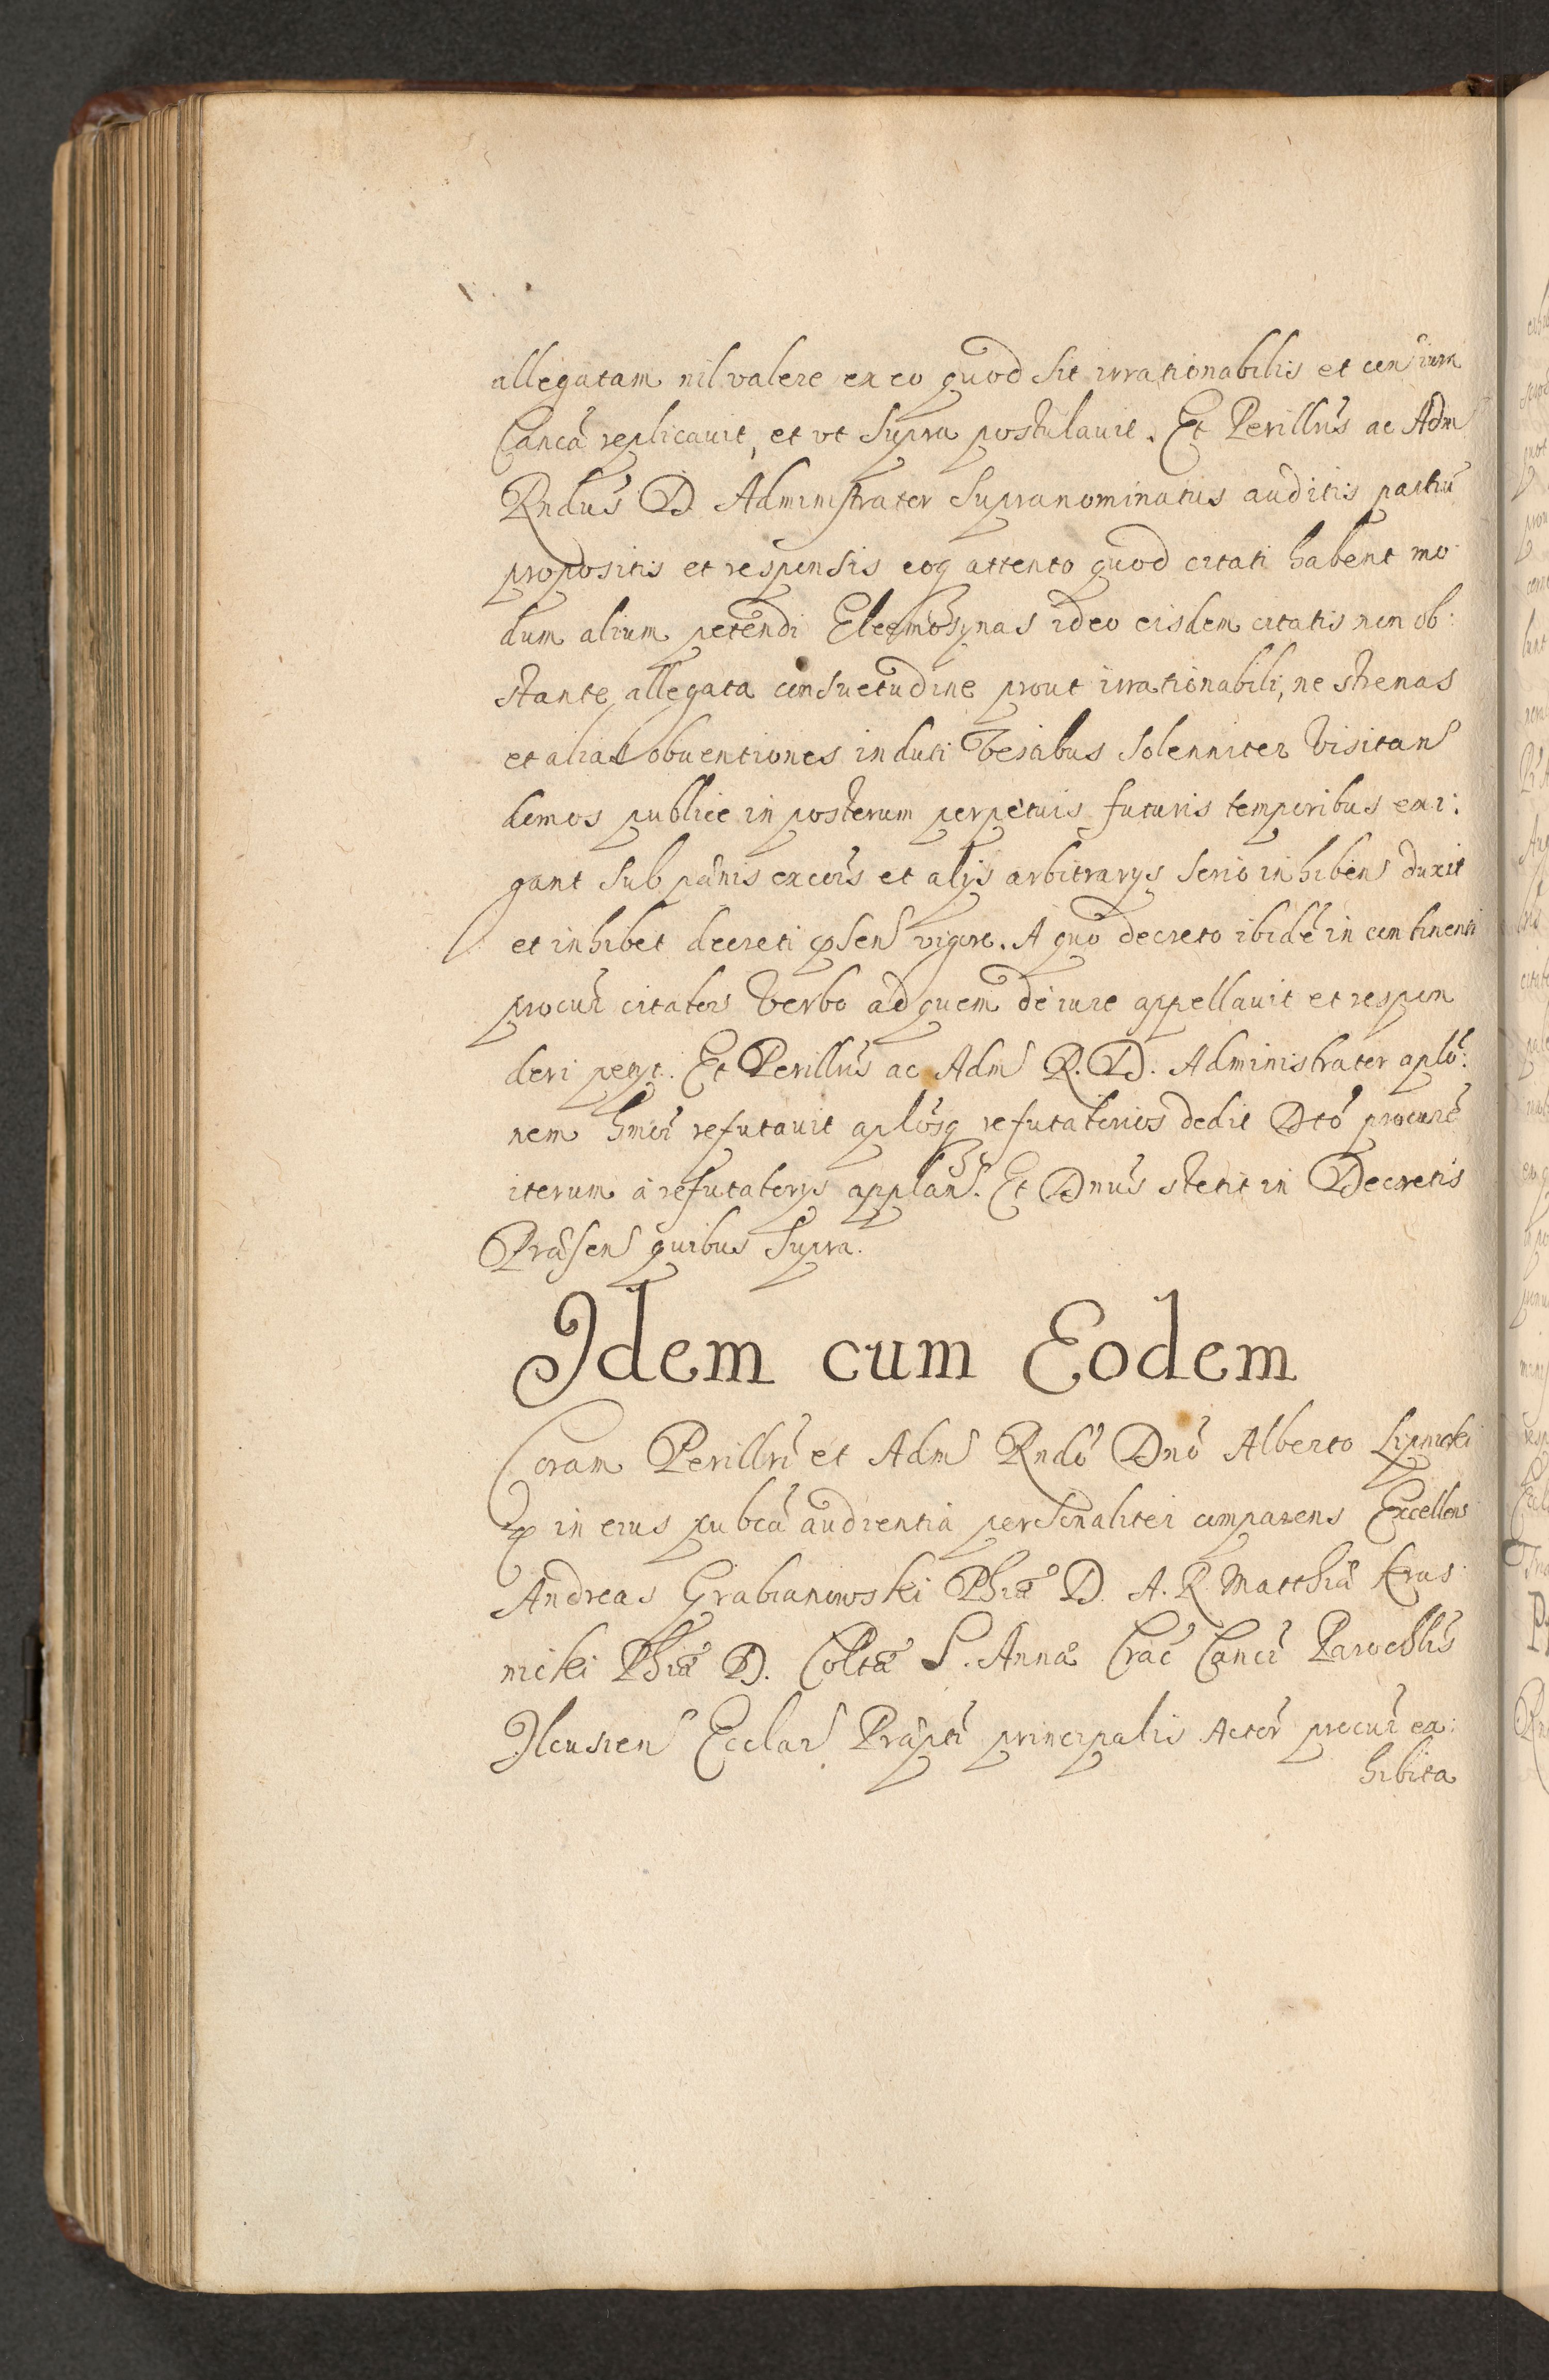 allegatam nil valere ex eo quod sit irrationabilis et con iura
Canca replicauit, et vt supra postulauit. Et Perillus ac Adm
Rndus D Administrator supranominatus auditis partiu
propositis et responsis eoq attento quod citati habent mo:
dum alium petendi Eleemosynas ideo eisdem citatis non ob:
stante allegata consuetudine prout irrationabili, ne strenas
et alias obuentiones induti Vestibus solenniter Visitan
domos publice in posterum perpetuis futuris temporibus exi:
gant sub pænis excois et alijs arbitrarijs serio inhiben duxit
et inhibet decreti psen vigore. A quo decreto ibide in continenti
procur citator Verbo ad quem de iure appellauit et respon
deri petijt. Et Perillus ac Adm R. D. Administrator aplo:
nem hmoi refutauit aplosq refutatorios dedit Dto procure
iterum à refutatorijs applan. Et Dnus stetit in Decretis
Præsen quibus supra.
Idem cum Eodem
Coram Perillri et Adm Rndo Dno Alberto Lipnicki
p in eius pubca audientia personaliter comparens Excellens
Andreas Grabianowski Phiæ D. A. R. Matthiæ Kras:
nicki Phiæ D. Coltæ S. Annæ Crac Canci Parochlis
Ilcusien Ecclar Præpti principalis Actor procur ex:
hibita